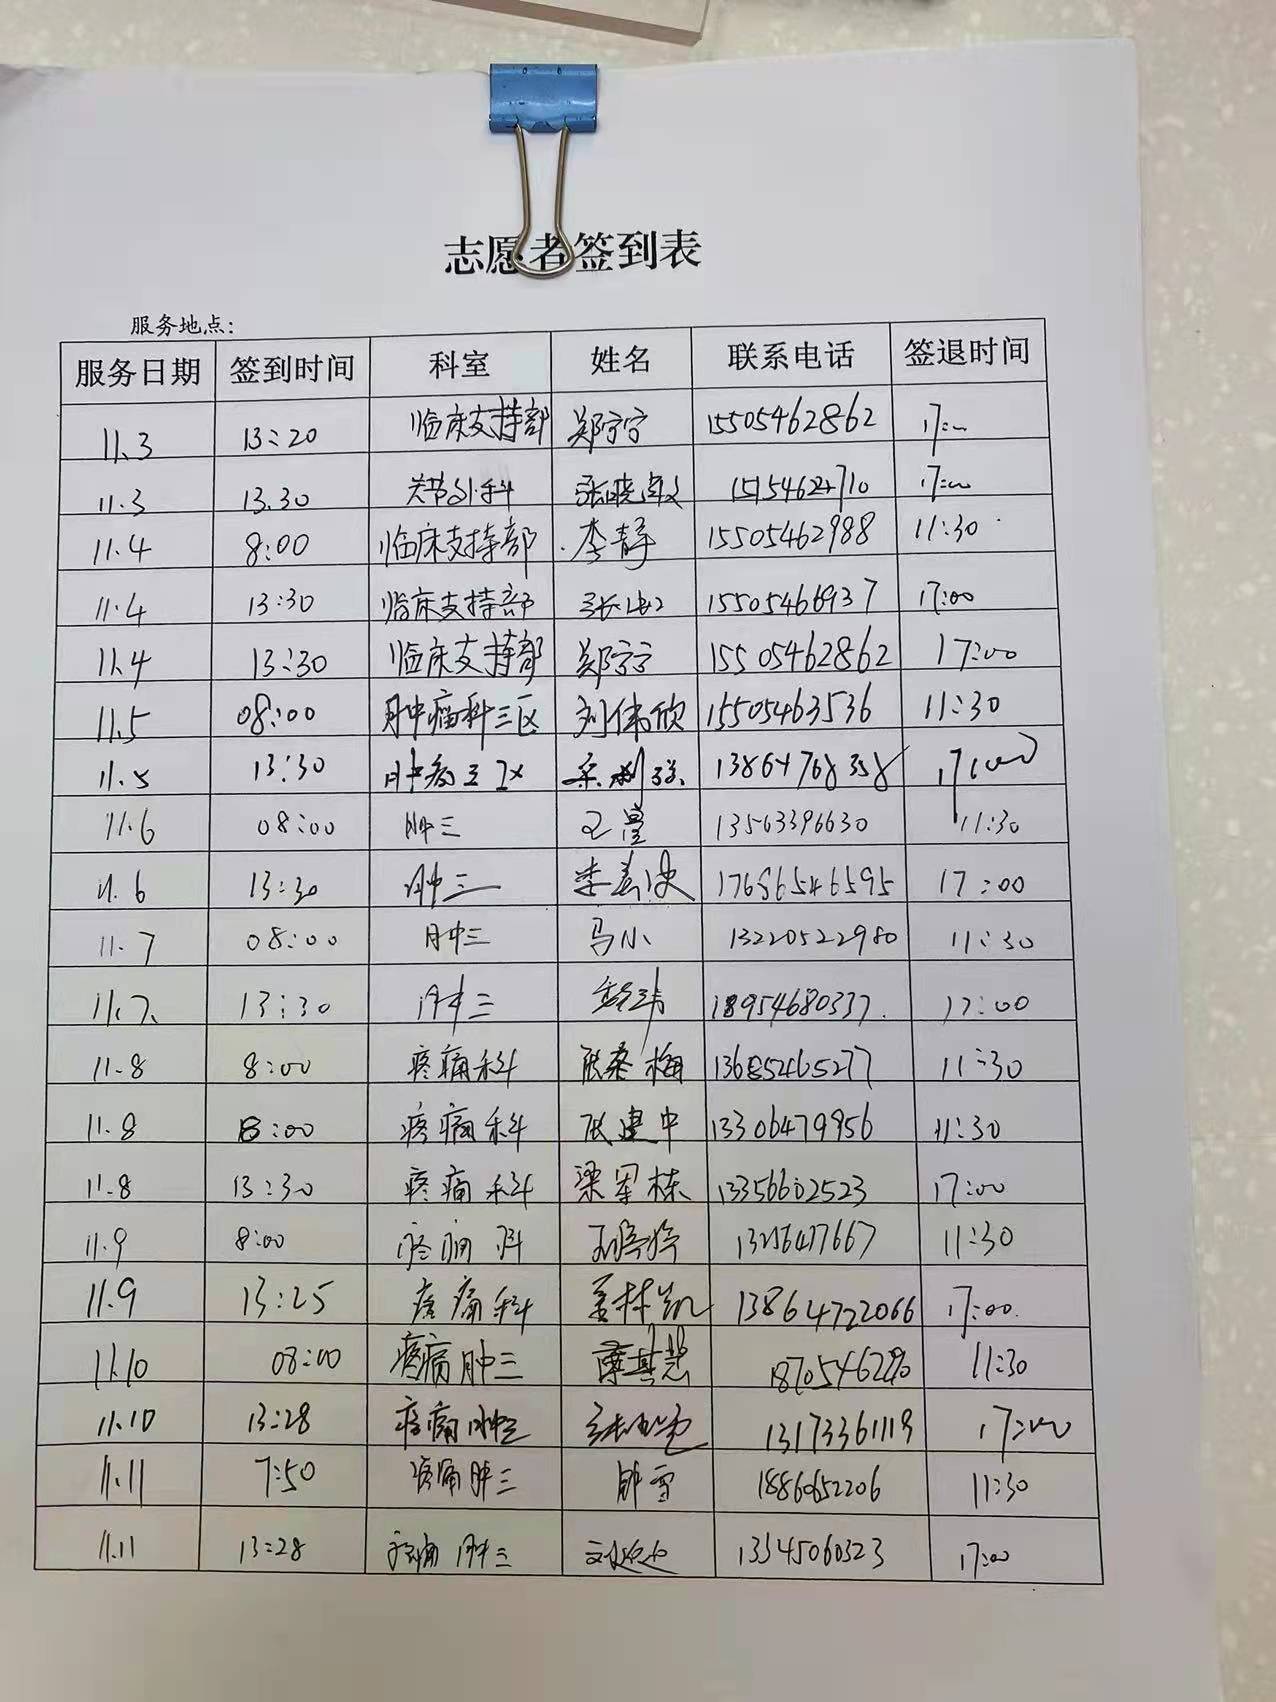 志愿者签到表
服务地点：
服务日期 签到时间 科室 姓名 联系电话 签退时间
11.3 13:20 临床支持部 郑宁宁 15505462862
11.3 13.30 关节外科 张晓敏
11.4 8:00 临床支持部 李静 15505462988 11:30
11.4 13:30 临床支持部 15505466937 17:00
11.4 13:30 临床支持部 郑宁宁 15505462862 17:00
11.5 08:00 肿瘤科三区 刘伟欣 15505463536 11:30
11.5 13:30 13864768358 17:00
11.6 08:00 肿三 13563396630 11:30
11.6 13:30 肿三 17686546595 17:00
11.7 08:00 肿三 马小 13220522980 11:30
11.7 13:30 肿三 18954680337 17:00
11.8 8:00 疼痛科 13685465277 11:30
11.8 8:00 疼痛科 张建中 13306479956 11:30
11.8 13:30 疼痛科 梁军栋 13356602523 17:00
11.9 8:00 疼痛科 11:30
11.9 13:25 疼痛科 姜林凯 13864722066 17:00
11.10 08:00 疼痛肿三 11:30
11.10 13:28 疼痛肿三 13173361119 17:00
11.11 7:50 疼痛肿三 11:30
11.11 13:28 疼痛肿三 13345060323 17:00